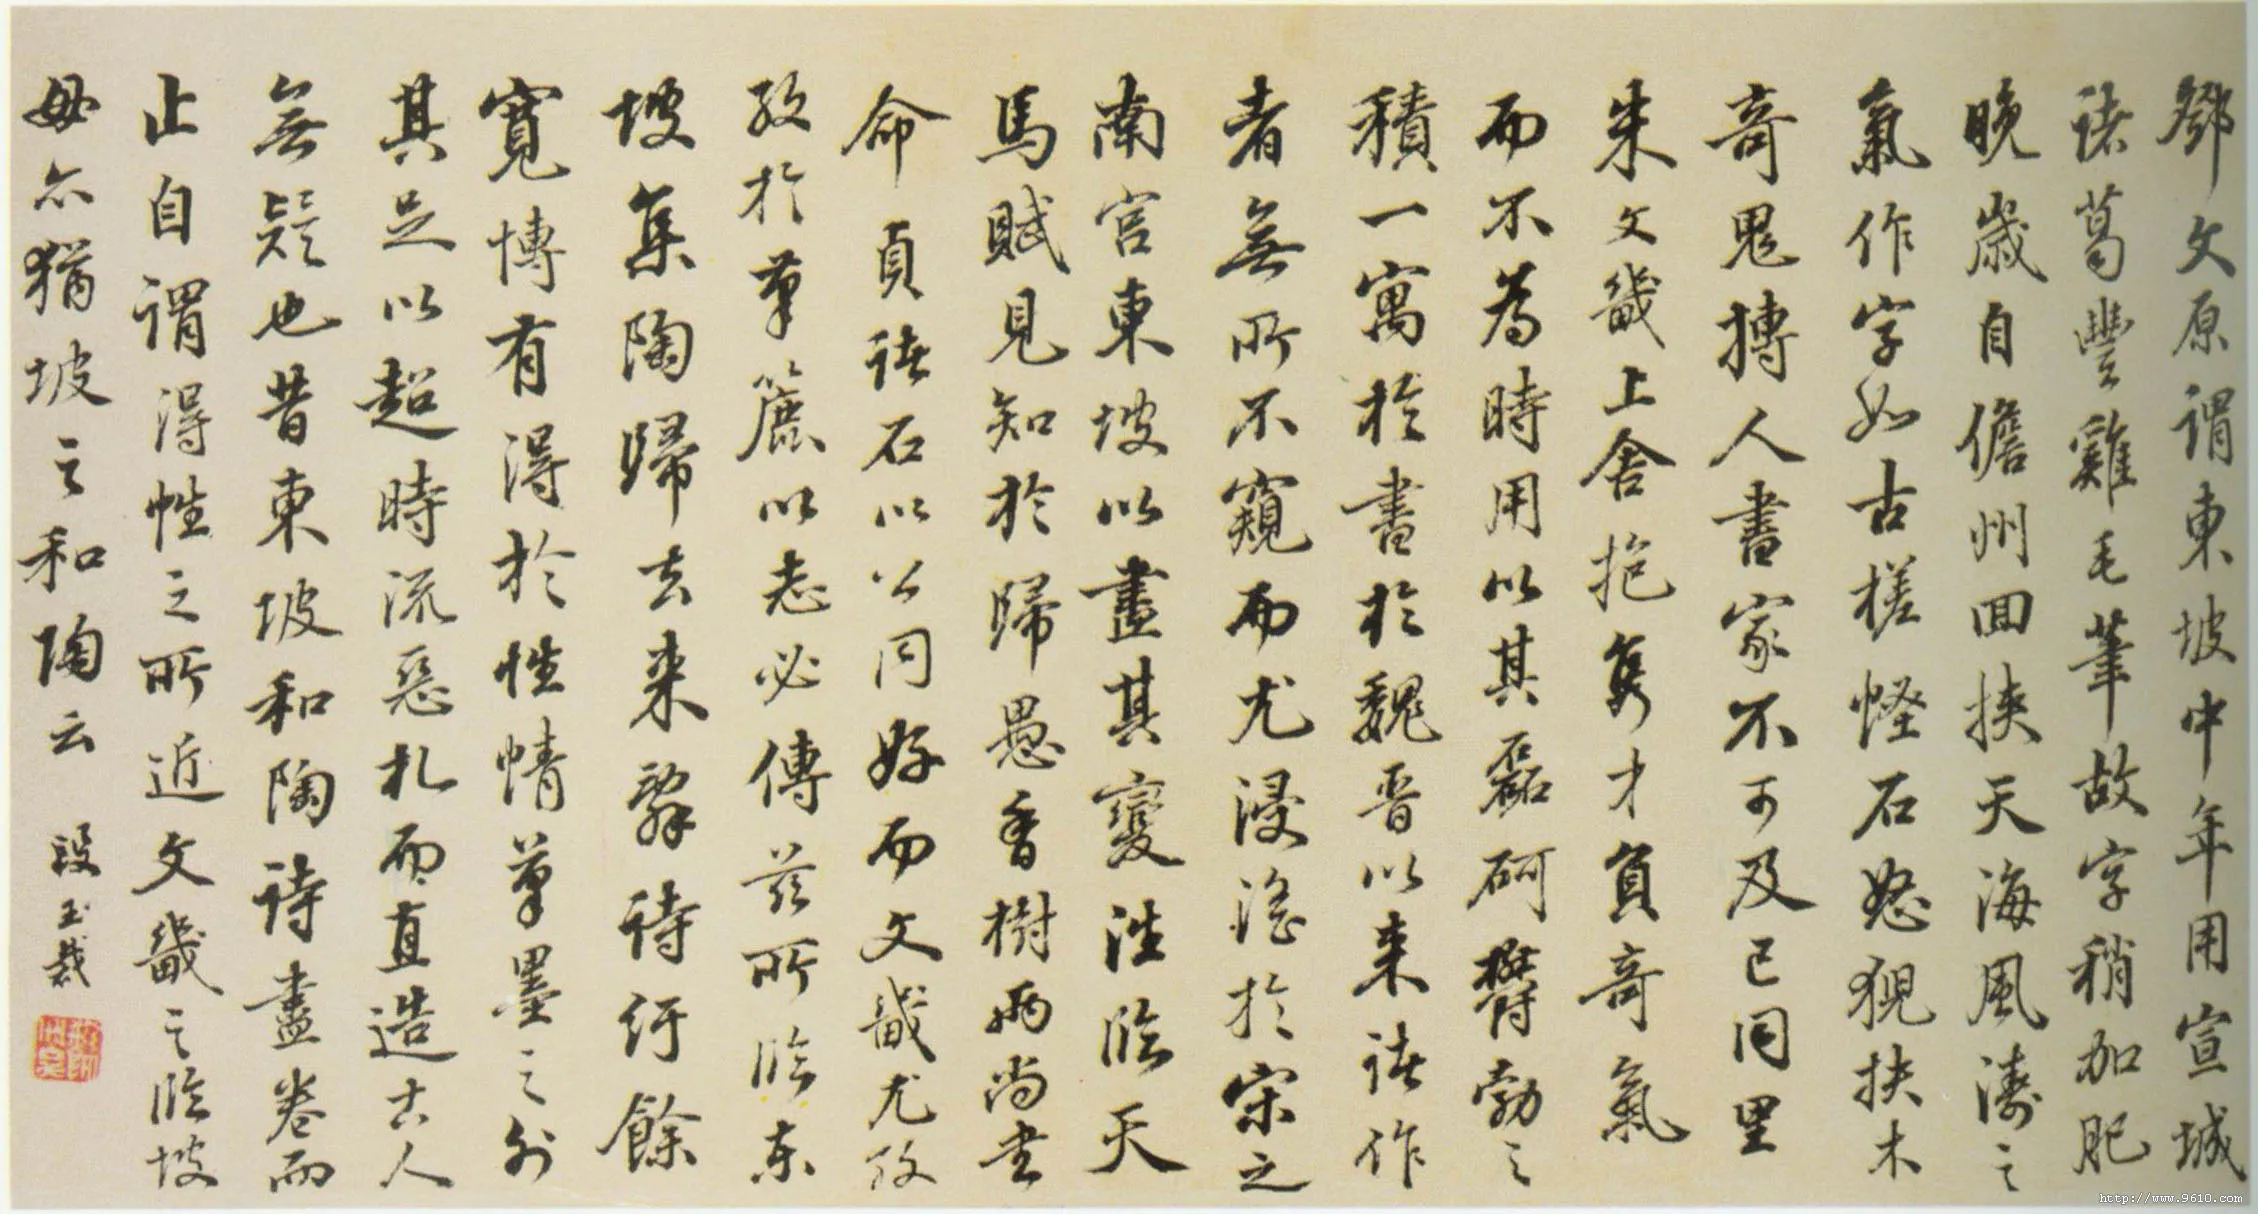 鄧文原謂東坡中年用宣城
諸葛豐雞毛筆故字稍加肥
晚歲自儋州回挾天海風濤之
氣作字如古槎怪石怒猊扶木
奇鬼搏人書家不可及已同里
朱文畿上舍抱雋才負奇氣
而不為時用以其磊砢欝勃之
積一寓於書於魏晉以來諸作
者無所不窺而尤浸淫於宋之
南宮東坡以盡其變法臨天
馬賦見知於歸愚香樹兩尚書
命貢諸石以公同好而文畿尤孜
孜於草簏以志必傳茲所臨東
坡集陶歸去來辭詩行餘
寬博有得於性情草墨之外
其足以超時流惡札而直造古人
無疑也昔東坡和陶詩盡卷而
止自謂得性之所近文畿之臨坡
毋亦猶坡之和陶云 段玉裁
http://www.9610.com